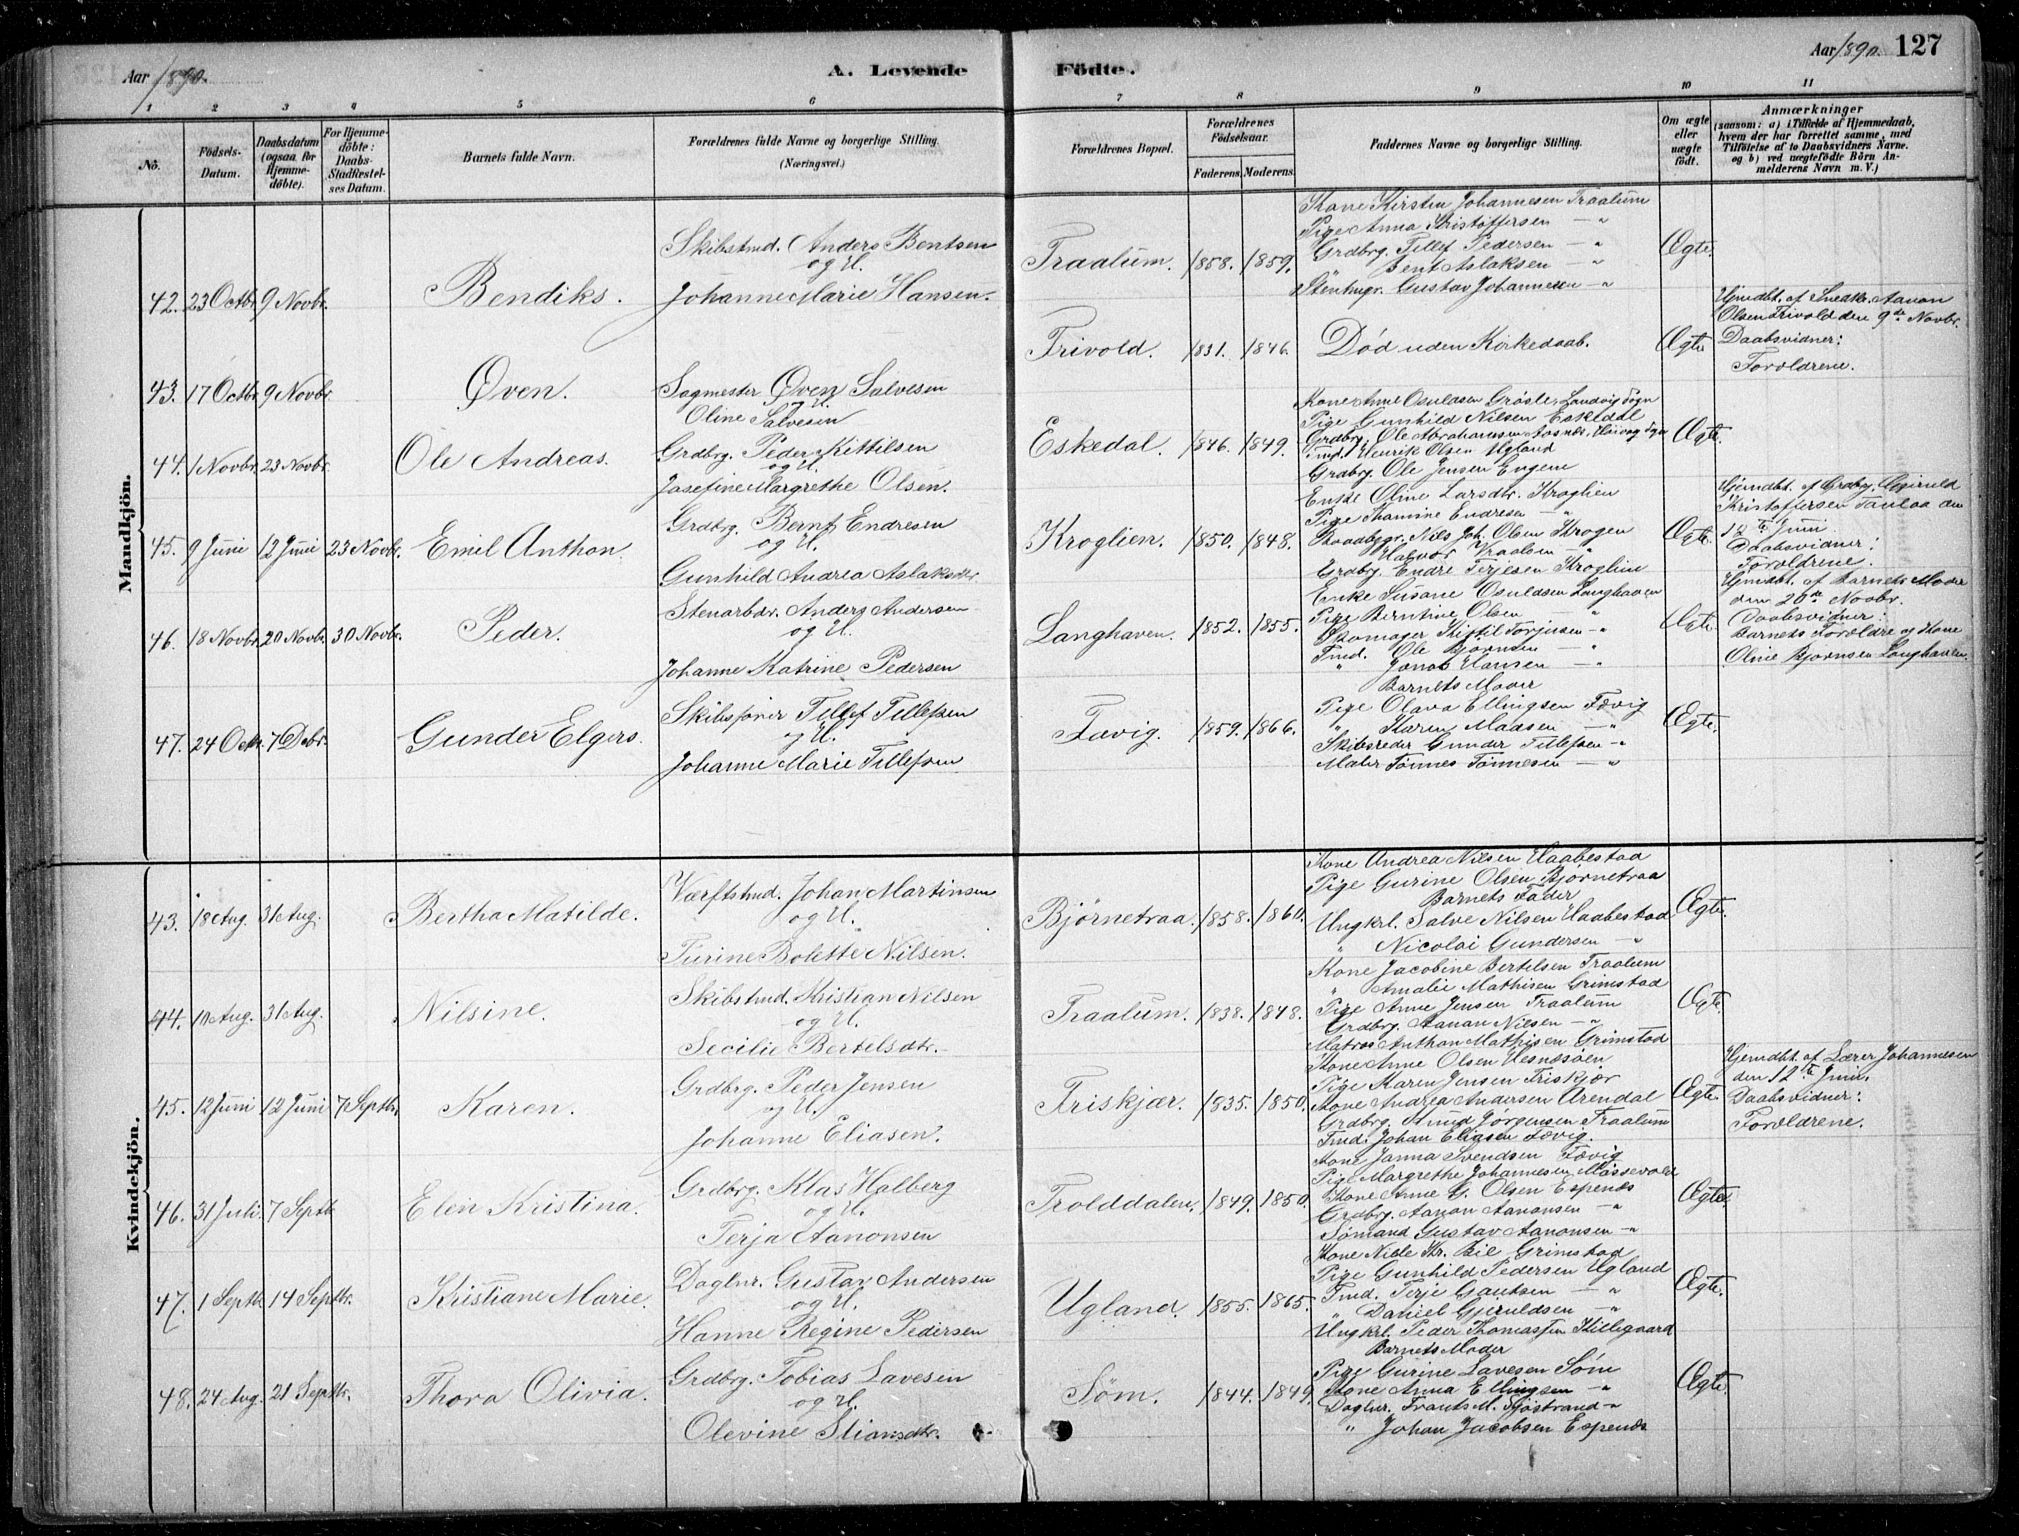 Aar 1890.
A. Levende Födte.
Aar 1890. 127
1 2 3 4 5 6 7 8 9 10 11
No.
Födsels-Datum.
Daabsdatum (ogsaa for Hjemmedöbte).
For Hjemmedöbte: Daabs-Stadfæstelses Datum.
Barnets fulde Navn.
Forældrenes fulde Navne og borgerlige Stilling. (Næringsvei.)
Forældrenes Bopæl.
Forældrenes Födselsaar.
Faderens. Moderens.
Faddernes Navne og borgerlige Stilling.
Om ægte eller uægte födt.
Anmærkninger (saasom: a) i Tilfælde af Hjemmedaab, hvem der har forrettet samme, med Tilföielse af to Daabsvidners Navne. og b) ved uægtefödte Börn Anmelderens Navn m. V.)
Mandkjön.
42. 23 Octbr. 9 Novbr. Bendiks.
Skibstmd. Anders Bentsen
og H.
Johanne Marie Hansen.
Traalum. 1858. 1859.
Kone Kirsten Johannesen Traalum
Pige Anna Kristoffersen — "
Grdbrg. Tellef Pedersen — "
Bent Aslaksen — "
Stenhugr. Gustav Johannesen — "
Ægte.
43. 17 Octbr. 9 Novbr. Øven.
Sagmester Øven Salvesen
og H.
Oline Salvesen
Trivold. 1831. 1846.
Død uden Kirkedaab.
Ægte
Hjemdbt. af Snedkr. Aanon
Olsen Trivold den 9de Novbr.
Daabsvidner:
Forældrene.
44. 1 Novbr. 23 Novbr. Ole Andreas.
Grdbrg. Peder Kittilsen
og H.
Josefine Margrethe Olsen.
Eskedal. 1846. 1849.
Kone Anne Osuldsen Grøsle, Landvig Sogn
Pige Gunhild Nilsen Eskedal
Grdbrg. Ole Abrahamsen Aasnes, Høivag Sgn
Tmd. Henrik Olsen Ugland
Grdbrg. Ole Jensen Engene
Ægte.
45. 9 Juni 12 Juni 23 Novbr. Emil Anthon.
Grdbrg. Bernt Endresen
og H.
Gunhild Andrea Aslaksdtr.
Kroglien. 1850. 1848.
Enke Oline Larsdtr. Kroglien
Pige Thamine Endresen — "
Baadbygr. Nils Joh. Olsen Krogen
Halvor Vraalsen — "
Grdbrg. Endre Terjesen Kroglien
Ægte.
Hjemdbt. af Grdbrg.
Kristoffersen den
12te Juni
Daabsvidner:
Forældrene.
46. 18 Novbr. 20 Novbr. 30 Novbr. Peder.
Stenarbdr. Anders Andersen
og H.
Johanne Katrine Pedersen
Langhaven. 1852. 1855.
Enke Susane Osuldsen Langhaven
Pige Berntine Olsen "
Skomager Kittil Torjusen — "
Tmd. Ole Bjørnsen — "
" Jonas Hansen — "
Barnets Moder
Ægte.
Hjemdbt. af Barnets Moder
den 20de Novbr.
Daabsvidner:
Barnets Forældre og Kone
Oline Bjørnsen Langhaven.
47. 24 Octr. 7 Debr. Gunder Elgers.
Skibsfører Tellef Tellefsen
og H.
Johanne Marie Tellefsen
Fævig. 1859. 1866.
Pige Olava Ellingsen Fævig
" Karen Maasen — "
Skibsreder Gunder Tellefsen — "
Maler Tønnes Tønnesen — "
Ægte.
Kvindekjön.
43. 18 Aug. 31 Aug. Bertha Matilde.
Værftstmd. Johan Martinsen
og H.
Turine Bolette Nilsen.
Bjørnetraa. 1858. 1860.
Kone Andrea Nilsen Haabestad
Pige Gurine Olsen Bjørnetraa
Barnets Fader
Ungkrl. Salve Nilsen Haabestad
" Nicolai Gundersen — "
Ægte.
44. 10 Aug. 31 Aug. Nilsine.
Skibstmd. Kristian Nilsen
og H.
Secilie Bertelsdtr.
Traalum. 1838. 1848.
Kone Jacobine Bertelsen Traalum
" Amalie Mathisen Grimstad
Pige Anne Jensen Traalum
Grdbrg. Aanan Nilsen — "
Matros Anthon Mathisen Grimstad
Ægte.
45. 12 Juni 12 Juni 7 Septbr. Karen.
Grdbrg. Peder Jensen
og H.
Johanne Eliasen.
Friskjær. 1835. 1850.
Kone Anne Olsen Hesnesøen
Pige Karen Jensen Friskjær
Kone Andrea Andersen Arendal
Grdbrg. Knud Jørgensen Traalum
Tmd. Johan Eliasen Fævig.
Ægte.
Hjemdbt. af Lærer Johannesen
den 12te Juni.
Daabsvidner:
Forældrene.
46. 31 Juli. 7 Septb. Elen Kristina.
Grdbrg. Klas Halberg
og H.
Terja Aanonsen
Trolddalen. 1849. 1850.
Kone Janna Svendsen Fævig
Pige Margrethe Johannesen Møssevold
Kone Anne G. Olsen Espenes
Grdbrg. Aanon Aanonsen — "
Sømand Gustav Aanonsen — "
Ægte.
47. 1 Septb. 14 Septbr. Kristiane Marie.
Daglnr. Gustav Andersen
og H.
Hanne Regine Pedersen
Ugland. 1855. 1865.
Kone Nille Kr. Bie Grimstad
Pige Gunhild Pedersen Ugland
Tmd. Terje Gautsen — "
" Daniel Gjeruldsen — "
Ungkrl. Peder Thomassen Killegaard
Barnets Moder
Ægte.
48. 24 Aug. 21 Septbr. Thora Olivia.
Grdbrg. Tobias Lavesen
og H.
Olevine Stiansdtr.
Søm. 1844. 1849.
Pige Gurine Lavesen Søm
Kone Anna Ellingsen — "
Daglnr. Frants M. Sjøstrand — "
" Johan Jacobsen Espenes
Ægte.